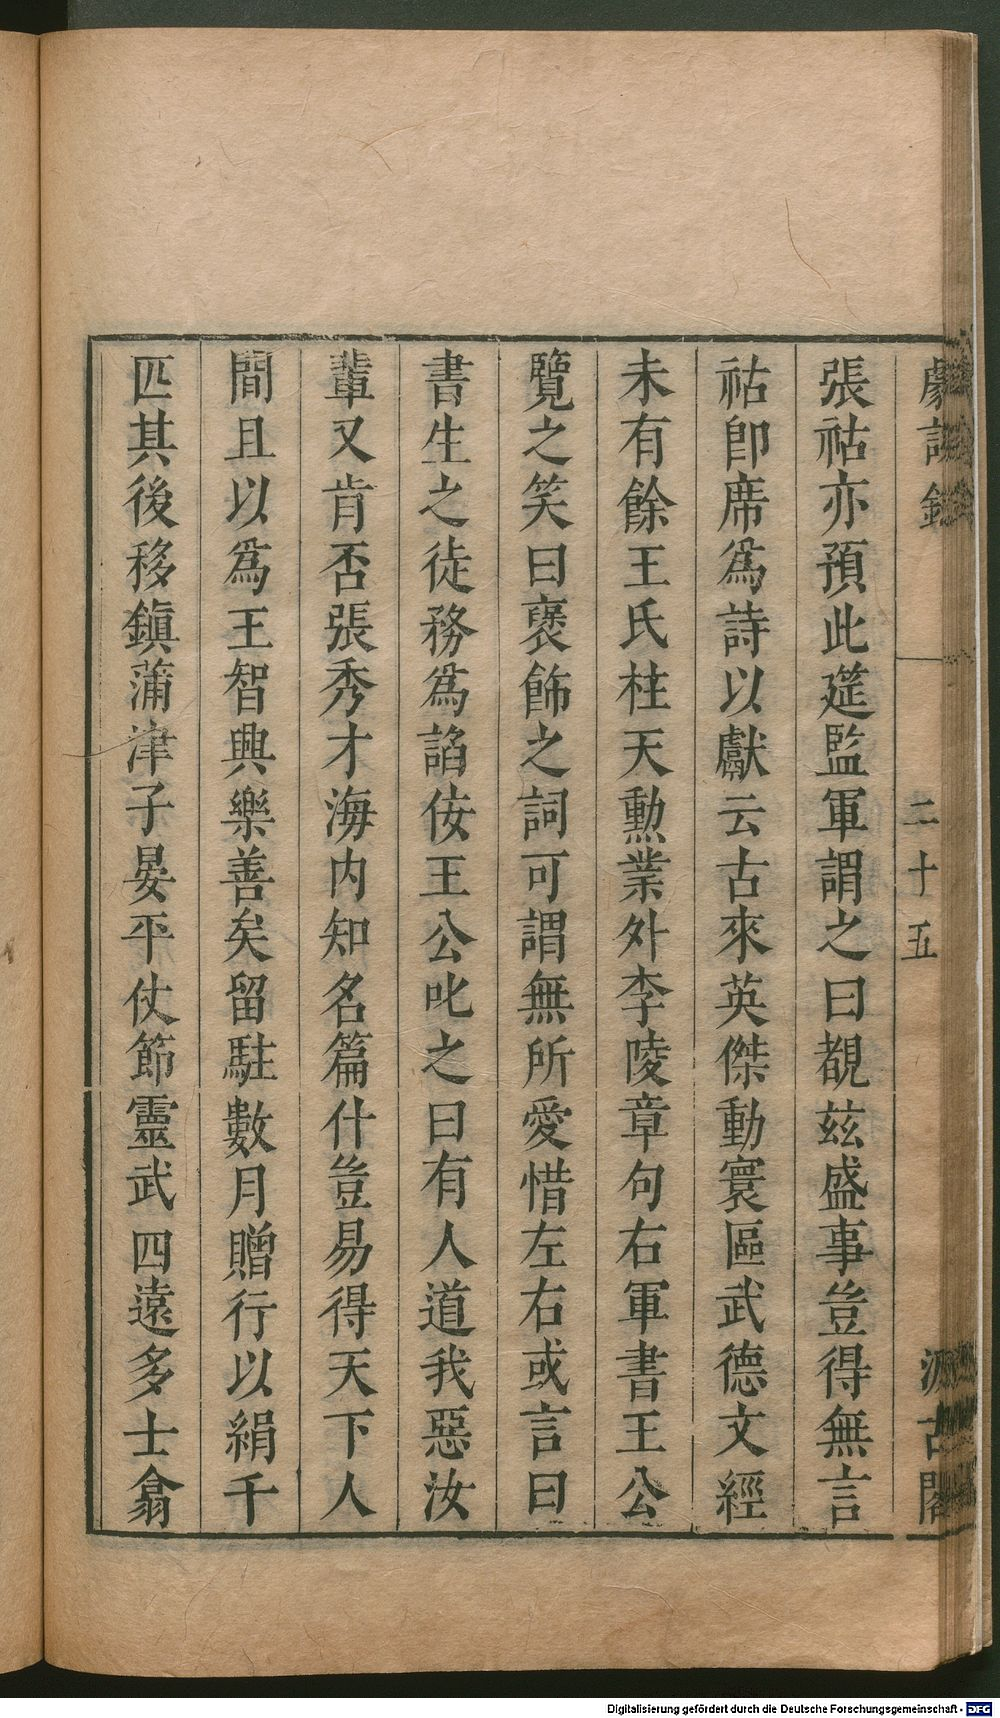 劇談錄
二十五
汲古閣
張祜亦預此筵監軍謂之曰覩茲盛事豈得無言
祜卽席爲詩以獻云古來英傑動寰區武德文經
未有餘王氏柱天勲業外李陵章句右軍書王公
覽之笑曰褒飾之詞可謂無所愛惜左右或言曰
書生之徒務爲諂佞王公叱之曰有人道我惡汝
輩又肯否張秀才海内知名篇什豈易得天下人
間且以爲王智興樂善矣留駐數月贈行以絹千
匹其後移鎭蒲津子晏平仗節靈武四遠多士翕
Digitalisierung gefördert durch die Deutsche Forschungsgemeinschaft - DFG